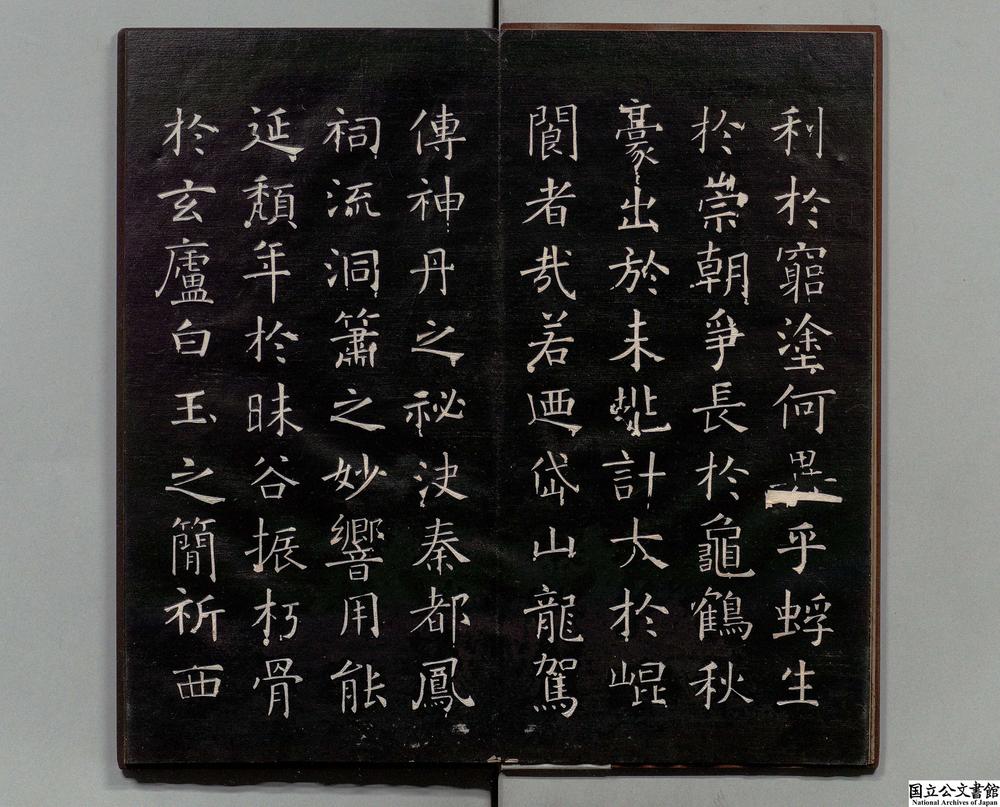 利於窮塗何異乎蜉生
於崇朝爭長於龜鶴秋
豪出於未兆計大於崐
閬者哉若迺岱山龍駕
傳神丹之祕決秦都鳳
祠流洞簫之妙響用能
延頹年於昧谷振朽骨
於玄廬白玉之簡祈西
国立公文書館
National Archives of Japan